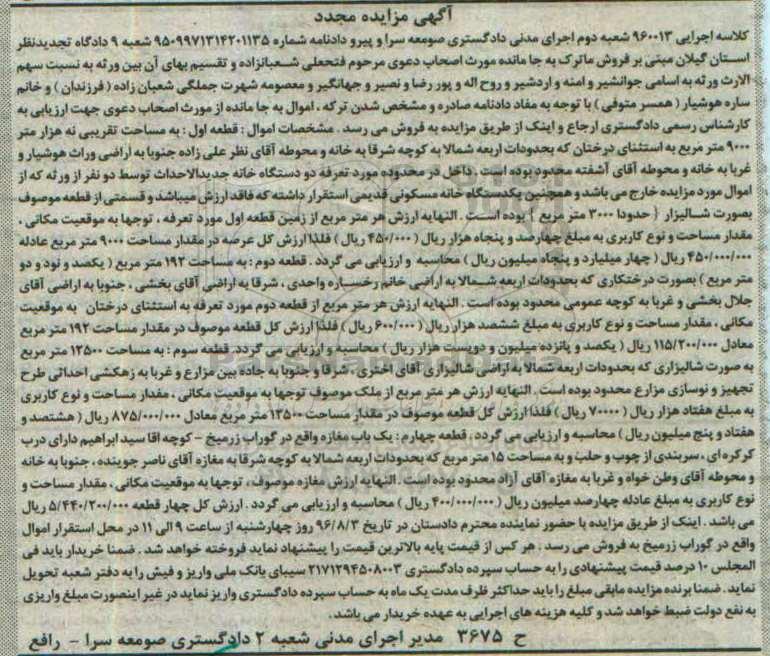 آگهی مزایده مجدد
کلاسه اجرایی ۹۶۰۰۱۳ شعبه دوم اجرای مدنی دادگستری صومعه سرا و پیرو دادنامه شماره ۹۵۰۹۹۷۱۳۱۴۲۰۱۱۳۵ شعبه ۹ دادگاه تجدیدنظر
استان گیلان مبنی بر فروش ماترک به جا مانده مورث اصحاب دعوی مرحوم فتحعلی شعبانزاده و تقسیم بهای آن بین ورثه به نسبت سهم
الارث ورثه به اسامی جوانشیر و امنه و اردشیر و روح اله و پور رضا و نصیر و جهانگیر و معصومه شهرت جملگی شعبان زاده ( فرزندان ) و خانم
ساره هوشیار ( همسر متوفی ) با توجه به مفاد دادنامه صادره و مشخص شدن ترکه ، اموال به جا مانده از مورث اصحاب دعوی جهت ارزیابی به
کارشناس رسمی دادگستری ارجاع و اینک از طریق مزایده به فروش می رسد . مشخصات اموال : قطعه اول : به مساحت تقریبی نه هزار متر
۹۰۰۰ متر مربع به استثنای درختان که بحدودات اربعه شمالا به کوچه شرقا به خانه و محوطه آقای نظر علی زاده جنوبا به اراضی وراث هوشیار و
غربا به خانه و محوطه آقای آشفته محدود بوده است . داخل در محدوده مورد تعرفه دو دستگاه خانه جدیدالاحداث توسط دو نفر از ورثه که از
اموال مورد مزایده خارج می باشد و همچنین یکدستگاه خانه مسکونی قدیمی استقرار داشته که فاقد ارزش میباشد و قسمتی از قطعه موصوف
بصورت شالیزار { حدودا ۳۰۰۰ متر مربع } بوده است . النهایه ارزش هر متر مربع از زمین قطعه اول مورد تعرفه ، توجها به موقعیت مکانی ،
مقدار مساحت و نوع کاربری به مبلغ چهارصد و پنجاه هزار ریال ( ۴۵۰/۰۰۰ ریال ) فلذا ارزش کل عرصه در مقدار مساحت ۹۰۰۰ متر مربع عادله
۴۵۰/۰۰۰/۰۰۰ ریال ( چهار میلیارد و پنجاه میلیون ریال ) محاسبه و ارزیابی می گردد . قطعه دوم : به مساحت ۱۹۲ متر مربع ( یکصد و نود و دو
متر مربع ) بصورت درختکاری که بحدودات اربعه شمالا به اراضی خانم رخساره واحدی ، شرقا به اراضی آقای بخشی ، جنوبا به اراضی آقای
جلال بخشی و غربا به کوچه عمومی محدود بوده است . النهایه ارزش هر متر مربع از قطعه دوم مورد تعرفه به استثنای درختان به موقعیت
مکانی ، مقدار مساحت و نوع کاربری به مبلغ ششصد هزار ریال ( ۶۰۰/۰۰۰ ریال ) فلذا ارزش کل قطعه موصوف در مقدار مساحت ۱۹۲ متر مربع
معادل ۱۱۵/۲۰۰/۰۰۰ ریال ( یکصد و پانزده میلیون و دویست هزار ریال ) محاسبه و ارزیابی می گردد. قطعه سوم : به مساحت ۱۲۵۰۰ متر مربع
به صورت شالیزاری که بحدودات اربعه شمالا به اراضی شالیزاری آقای اختری ، شرقا و جنوبا به جاده بین مزارع و غربا به زهکشی احداثی طرح
تجهیز و نوسازی مزارع محدود بوده است . النهایه ارزش هر متر مربع از ملک موصوف توجها به موقعیت مکانی ، مقدار مساحت و نوع کاربری
به مبلغ هفتاد هزار ریال ( ۷۰۰۰۰ ریال ) فلذا ارزش کل قطعه موصوف در مقدار مساحت ۱۲۵۰۰ متر مربع معادل ۸۷۵/۰۰۰/۰۰۰ ریال ( هشتصد و
هفتاد و پنج میلیون ریال ) محاسبه و ارزیابی می گردد . قطعه چهارم : یک باب مغازه واقع در گوراب زرمیخ – کوچه اقا سید ابراهیم دارای درب
کرکره ای ، سربندی از چوب و حلب و به مساحت ۱۵ متر مربع که بحدودات اربعه شمالا به کوچه شرقا به مغازه آقای ناصر جوینده ، جنوبا به خانه
و محوطه آقای وطن خواه و غربا به مغازه آقای آزاد محدود بوده است . النهایه ارزش مغازه موصوف ، توجها به موقعیت مکانی ، مقدار مساحت و
نوع کاربری به مبلغ عادله چهارصد میلیون ریال ( ۴۰۰/۰۰۰/۰۰۰ ریال ) محاسبه و ارزیابی می گردد . ارزش کل چهار قطعه ۵/۴۴۰/۲۰۰/۰۰۰ ریال
می باشد . اینک از طریق مزایده با حضور نماینده محترم دادستان در تاریخ ۹۶/۸/۳ روز چهارشنبه از ساعت ۹ الی ۱۱ در محل استقرار اموال
واقع در گوراب زرمیخ به فروش می رسد . هر کس از قیمت پایه بالاترین قیمت را پیشنهاد نماید فروخته خواهد شد . ضمنا خریدار باید فی
المجلس ۱۰ درصد قیمت پیشنهادی را به حساب سپرده دادگستری ۲۱۷۱۲۹۴۵۰۸۰۰۳ سیبای بانک ملی واریز و فیش را به دفتر شعبه تحویل
نماید . ضمنا برنده مزایده مابقی مبلغ را باید حداکثر ظرف مدت یک ماه به حساب سپرده دادگستری واریز نماید در غیر اینصورت مبلغ واریزی
به نفع دولت ضبط خواهد شد و کلیه هزینه های اجرایی به عهده خریدار می باشد .
ح ۳۶۷۵ مدیر اجرای مدنی شعبه ۲ دادگستری صومعه سرا – رافع